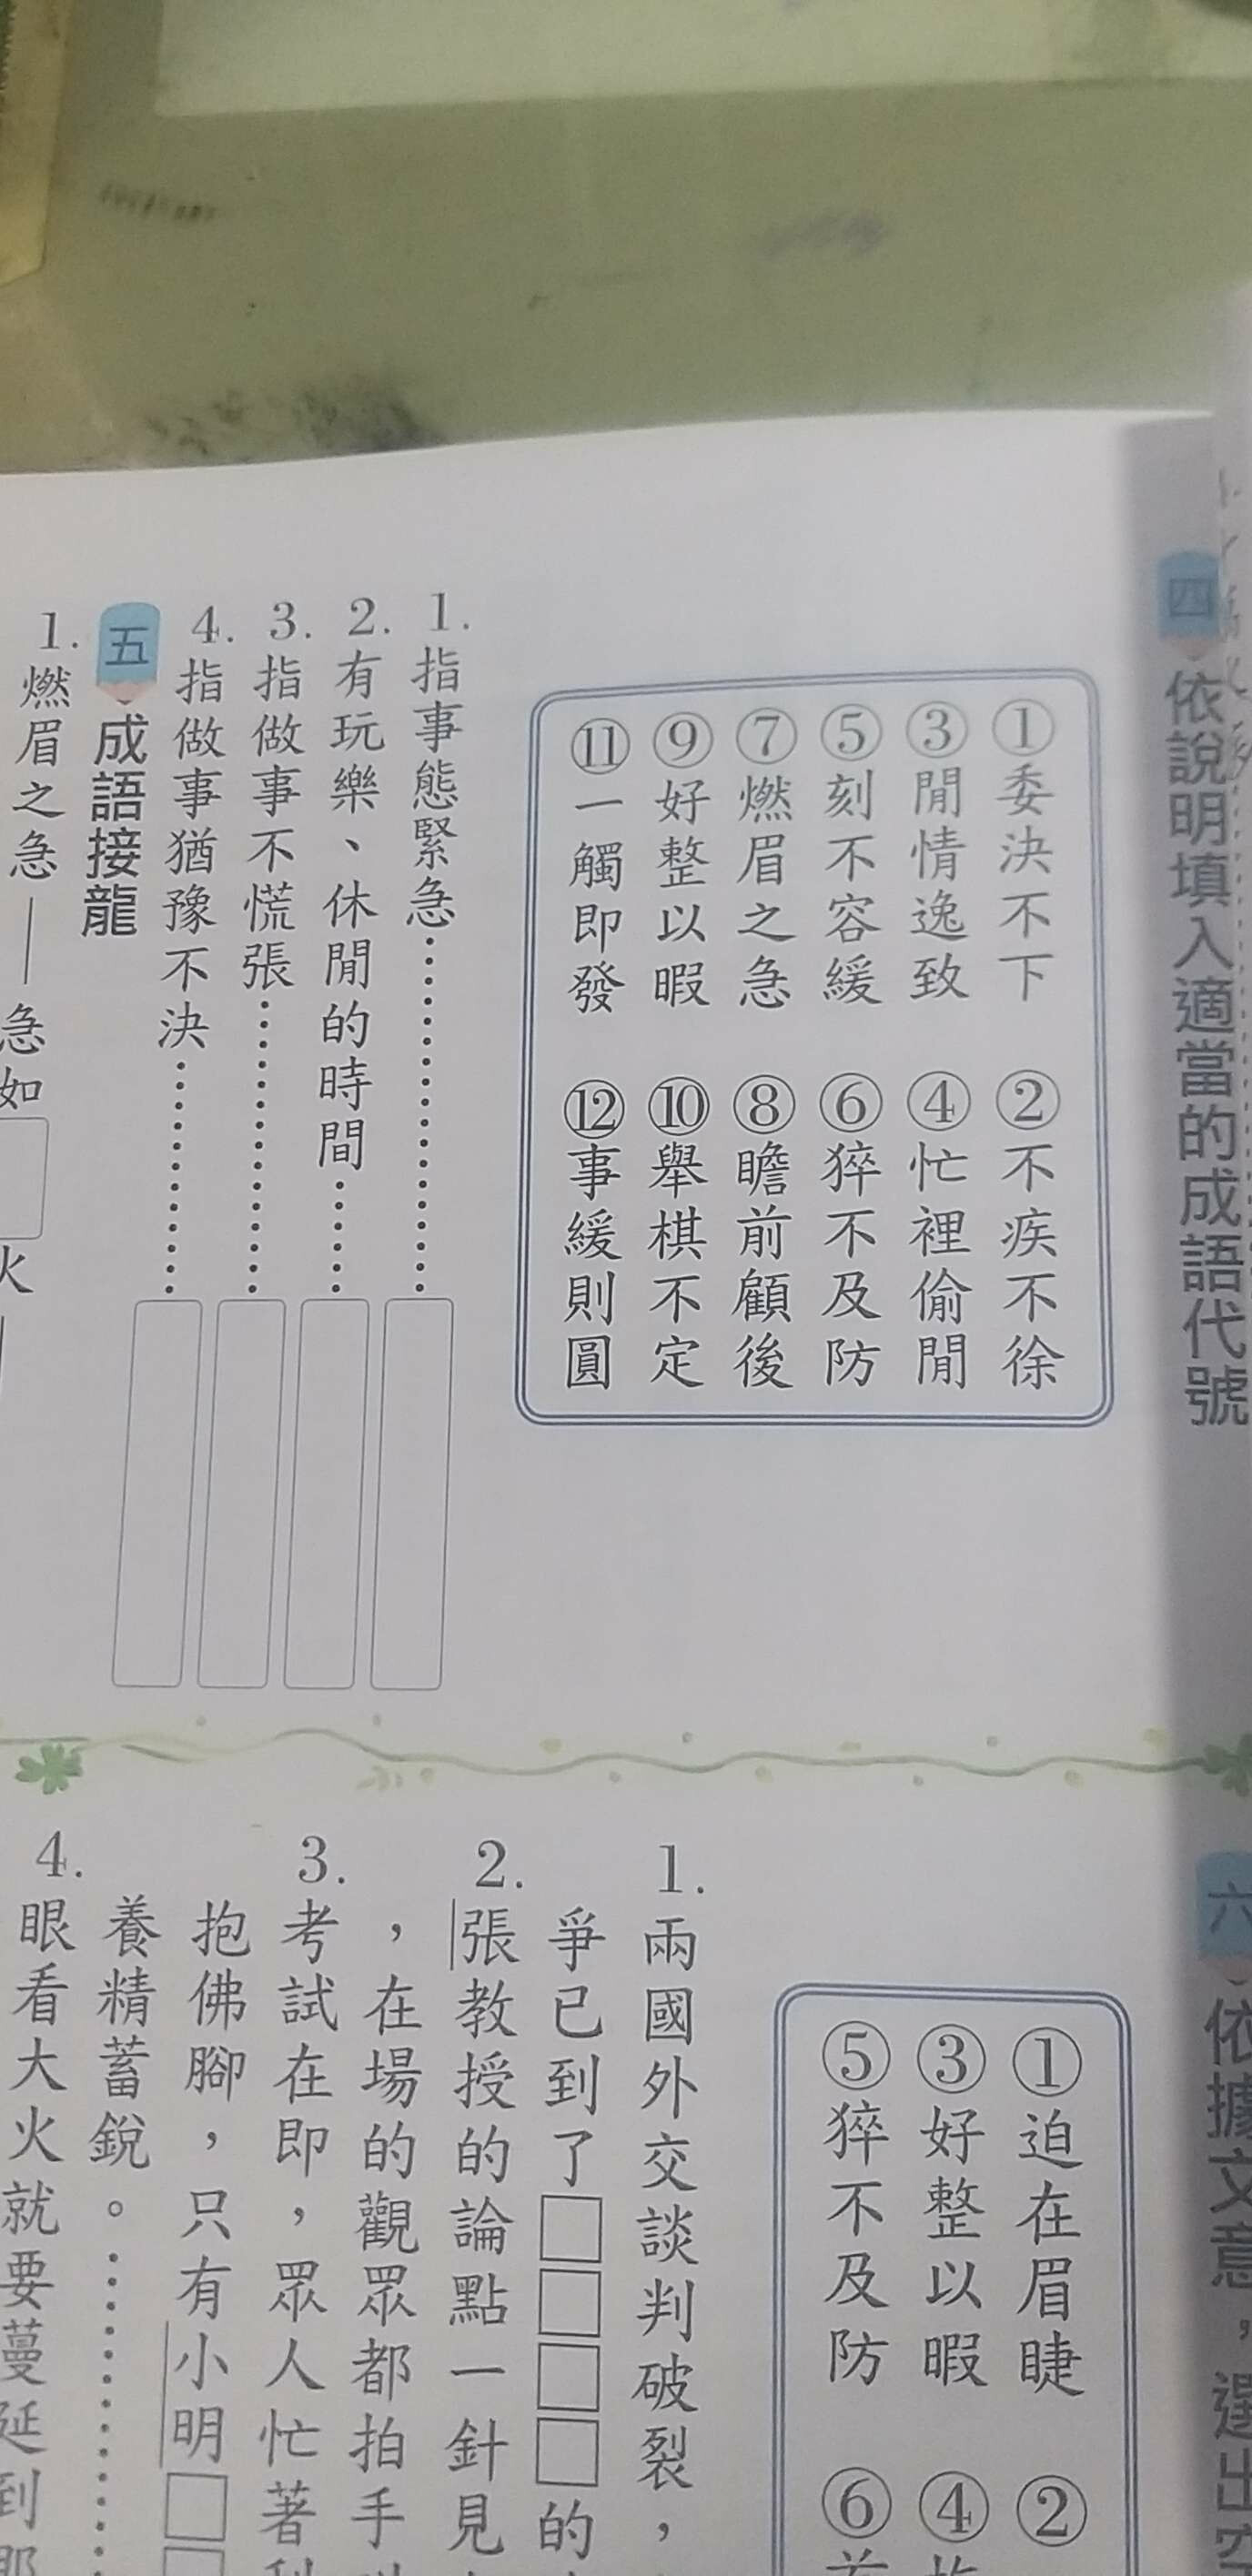 四 依說明填入適當的成語代號
①委決不下 ②不疾不徐
③閒情逸致 ④忙裡偷閒
⑤刻不容緩 ⑥猝不及防
⑦燃眉之急 ⑧瞻前顧後
⑨好整以暇 ⑩舉棋不定
⑪一觸即發 ⑫事緩則圓
1.指事態緊急…………
2.有玩樂、休閒的時間……
3.指做事不慌張…………
4.指做事猶豫不決………
五 成語接龍
1.燃眉之急—急如□火—
六 依據文意,選出
①迫在眉睫 ②
③好整以暇 ④
⑤猝不及防 ⑥
1.兩國外交談判破裂,
爭已到了□□□□的
2.張教授的論點一針見
,在場的觀眾都拍手
3.考試在即,眾人忙著
抱佛腳,只有小明□
養精蓄銳。……
4.眼看大火就要蔓延到